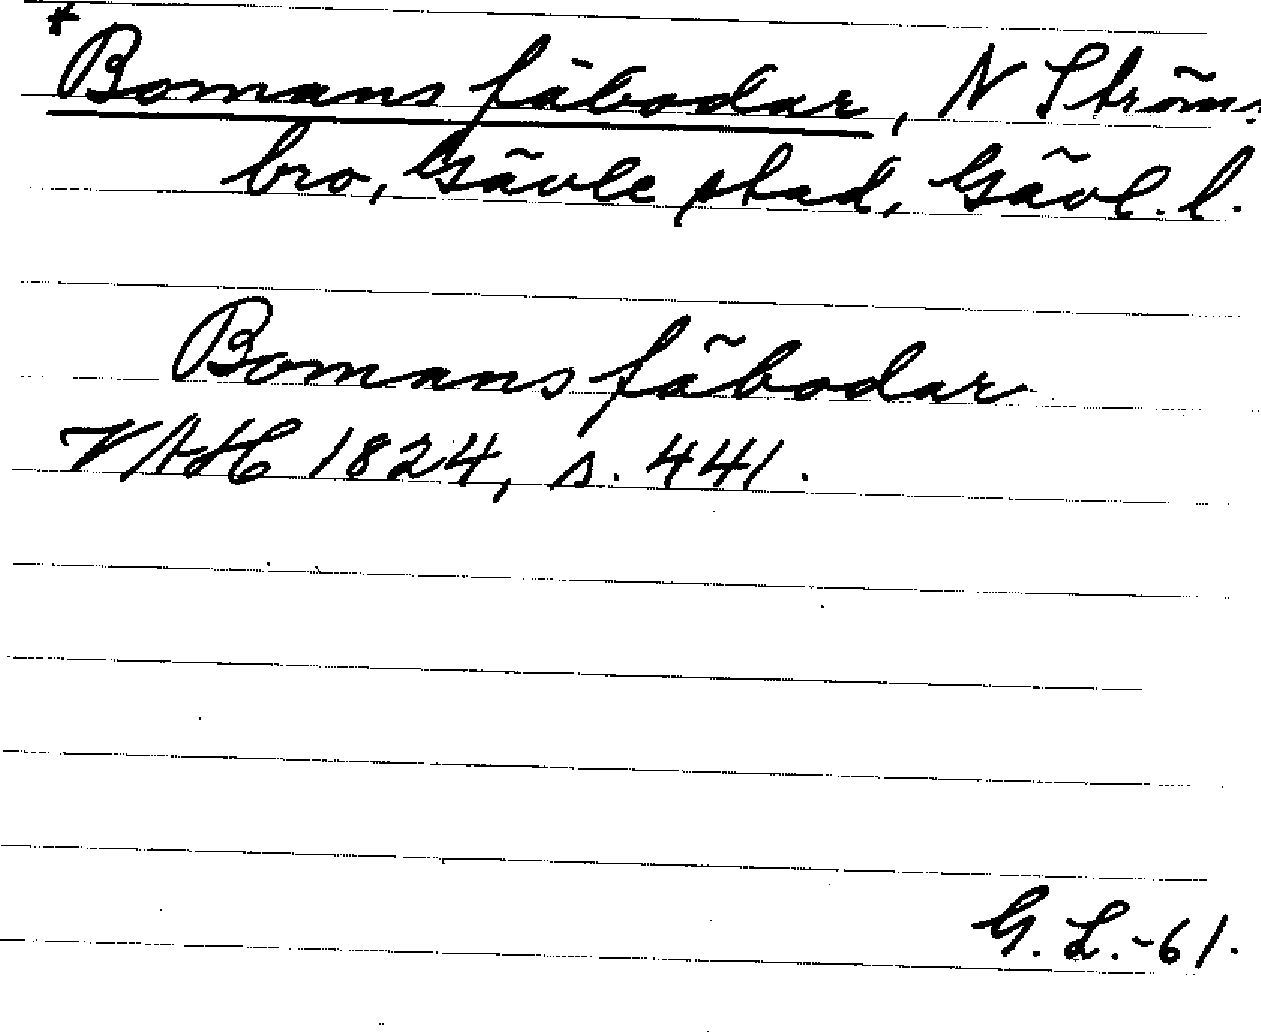 *Bomans fäbodar, N Ströms-
bro, Gävle stad, Gävl. l.
Bomans fäbodar
VAH 1824, s. 441.
G. L. -61.